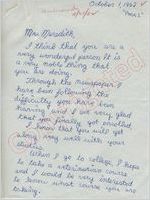 October 1, 1962
Mr. Meredith,
I think that you are a
very wonderful person. It is
a very noble thing that
you are doing.
Through the newspaper I
have been following the
difficulty you have been
having and I am very glad
that you finally got enrolled.
I know that you will get
along very well with your
studies.
When I go to college I hope
to take a veterinarian course
and I would be very interested
to know what course you are
taking.